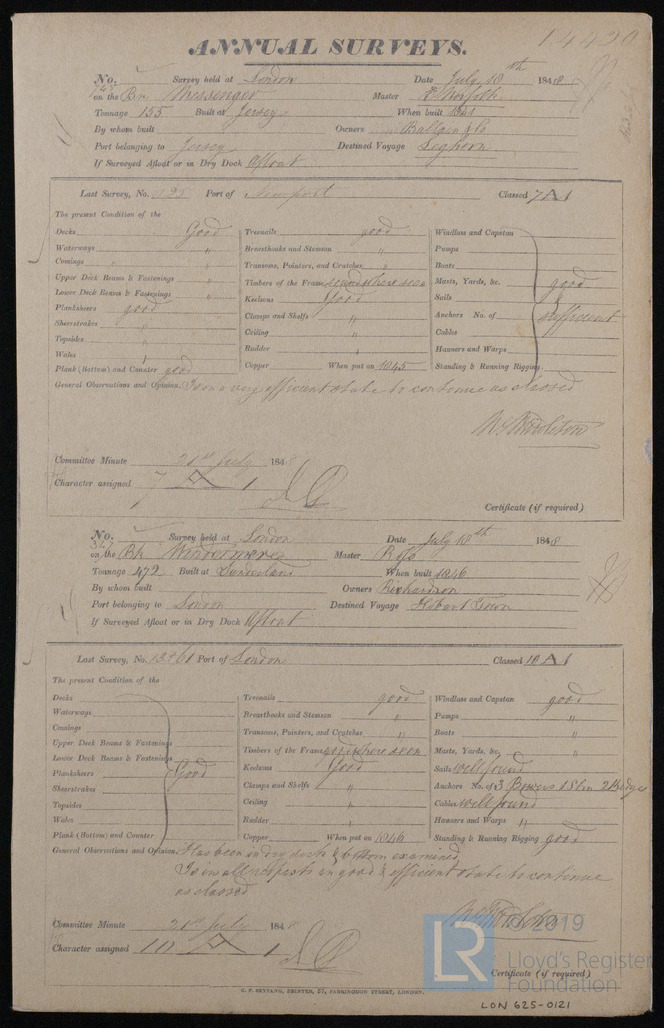 14420
ANNUAL SURVEYS.
No. 746 Survey held at London Date July 18th 1848
on the Bn Messenger Master
Tonnage 155 Built at Jersey When built 1841
By whom built Owners & Co
Port belonging to Jersey Destined Voyage Leghorn
If Surveyed Afloat or in Dry Dock Afloat
Last Survey, No. 125 Port of Newport Classed 7 A 1
The present Condition of the
Decks Good Treenails good Windlass and Capstan
Waterways " Breasthooks and Stemson " Pumps
Comings " Transoms, Pointers, and Crutches " Boats
Upper Deck Beams & Fastenings " Timbers of the Frame sound where seen Masts, Yards, &c. good
Lower Deck Beams & Fastenings " Keelsons Good Sails
Planksheers good Clamps and Shelfs " Anchors No. of sufficient
Sheerstrakes " Ceiling " Cables
Topsides " Rudder " Hawsers and Warps
Wales " Copper When put on 1845 Standing & Running Rigging
Plank (Bottom) and Counter good
General Observations and Opinion. Is in a very efficient state to continue as classed
Committee Minute 21st July 1848
Character assigned 7 A 1
Certificate (if required)
No. 347 Survey held at London Date July 18th 1848
on the Bk Windermere Master
Tonnage 472 Built at Sunderland When built 1846
By whom built Owners Richardson
Port belonging to London Destined Voyage Hobart Town
If Surveyed Afloat or in Dry Dock Afloat
Last Survey, No. Port of London Classed 10 A 1
The present Condition of the
Decks Treenails good Windlass and Capstan good
Waterways Breasthooks and Stemson " Pumps "
Comings Transoms, Pointers, and Crutches " Boats "
Upper Deck Beams & Fastenings Timbers of the Frame good where seen Masts, Yards, &c. "
Lower Deck Beams & Fastenings Keelsons Good Sails well found
Planksheers Good Clamps and Shelfs " Anchors No. of 3 Bowers 1 Stm 2 Kedges
Sheerstrakes Ceiling " Cables well found
Topsides Rudder " Hawsers and Warps "
Wales Copper When put on 1846 Standing & Running Rigging good
Plank (Bottom) and Counter
General Observations and Opinion. Has been in dry dock & bottom examined
Is in all respects in good & efficient state to continue
as classed
Committee Minute 21st July 1848
Character assigned 10 A 1
Certificate (if required)
LR © 2019
Lloyd's Register
Foundation
C. F. SEYFANG, PRINTER, 57, FARRINGDON STREET, LONDON.
LON 625-0121